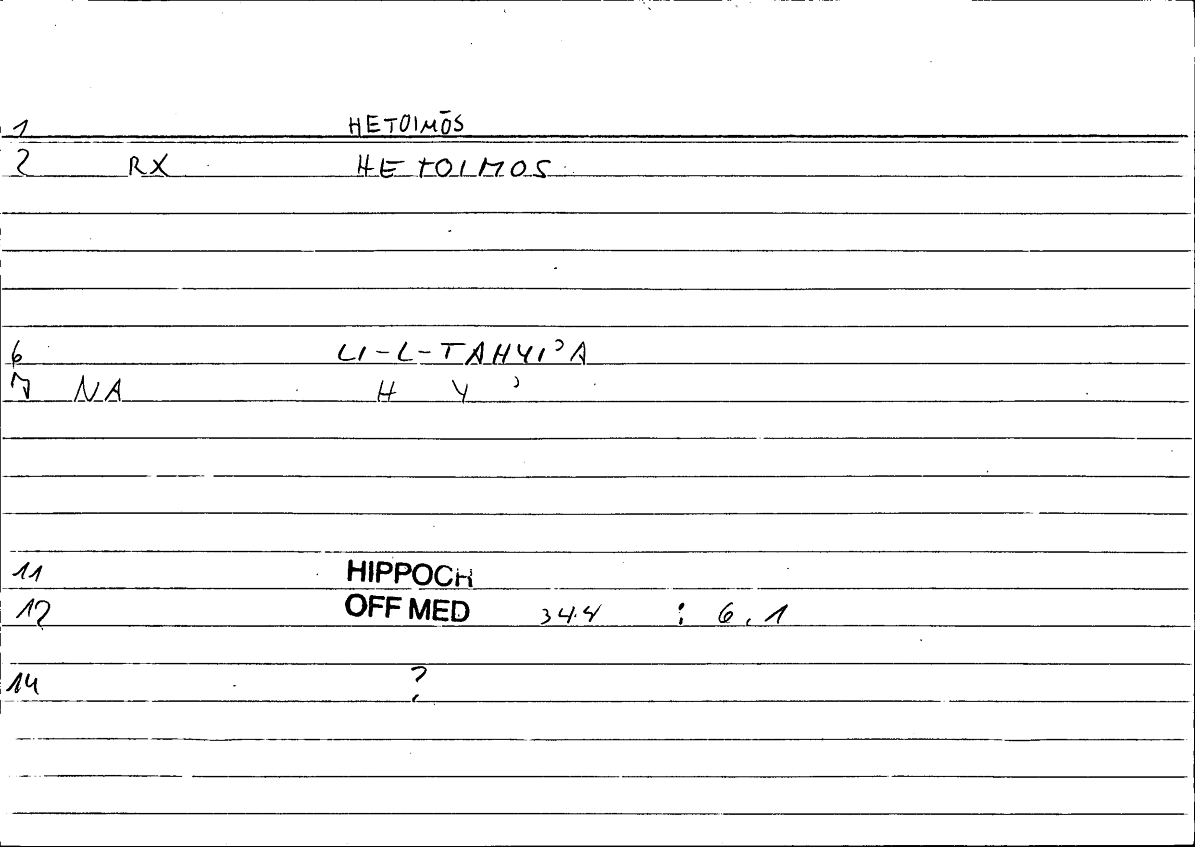 1 HETOIMŌS
2 RX HETOIMOS
6 LI-L-TAHYI'A
7 NA H Y '
11 HIPPOCH
12 OFF MED 34.4 : 6.1
14 ?